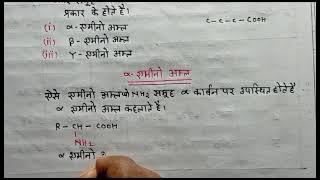 प्रकार के होते हैं।
C-C-C-COOH
(i) α-एमीनो अम्ल
(ii) β-एमीनो अम्ल
(iii) γ-एमीनो अम्ल
α-एमीनो अम्ल
ऐसे एमीनो अम्ल NH2 समूह α कार्बन पर उपस्थित होते है
α एमीनो अम्ल कहलाते हैं।
R-CH-COOH
NH2
α एमीनो